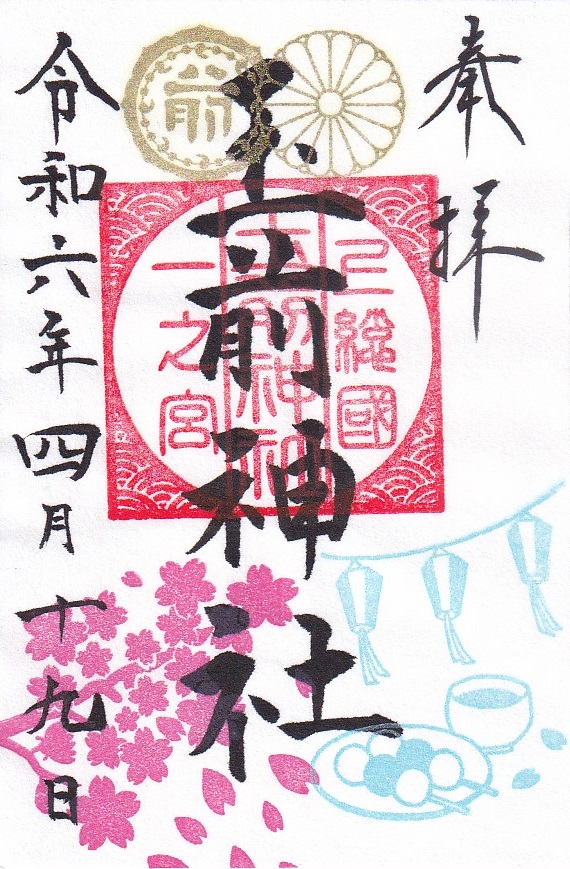 奉拝
上総國
玉前神社
一之宮
玉前神社
前
令和六年四月十九日